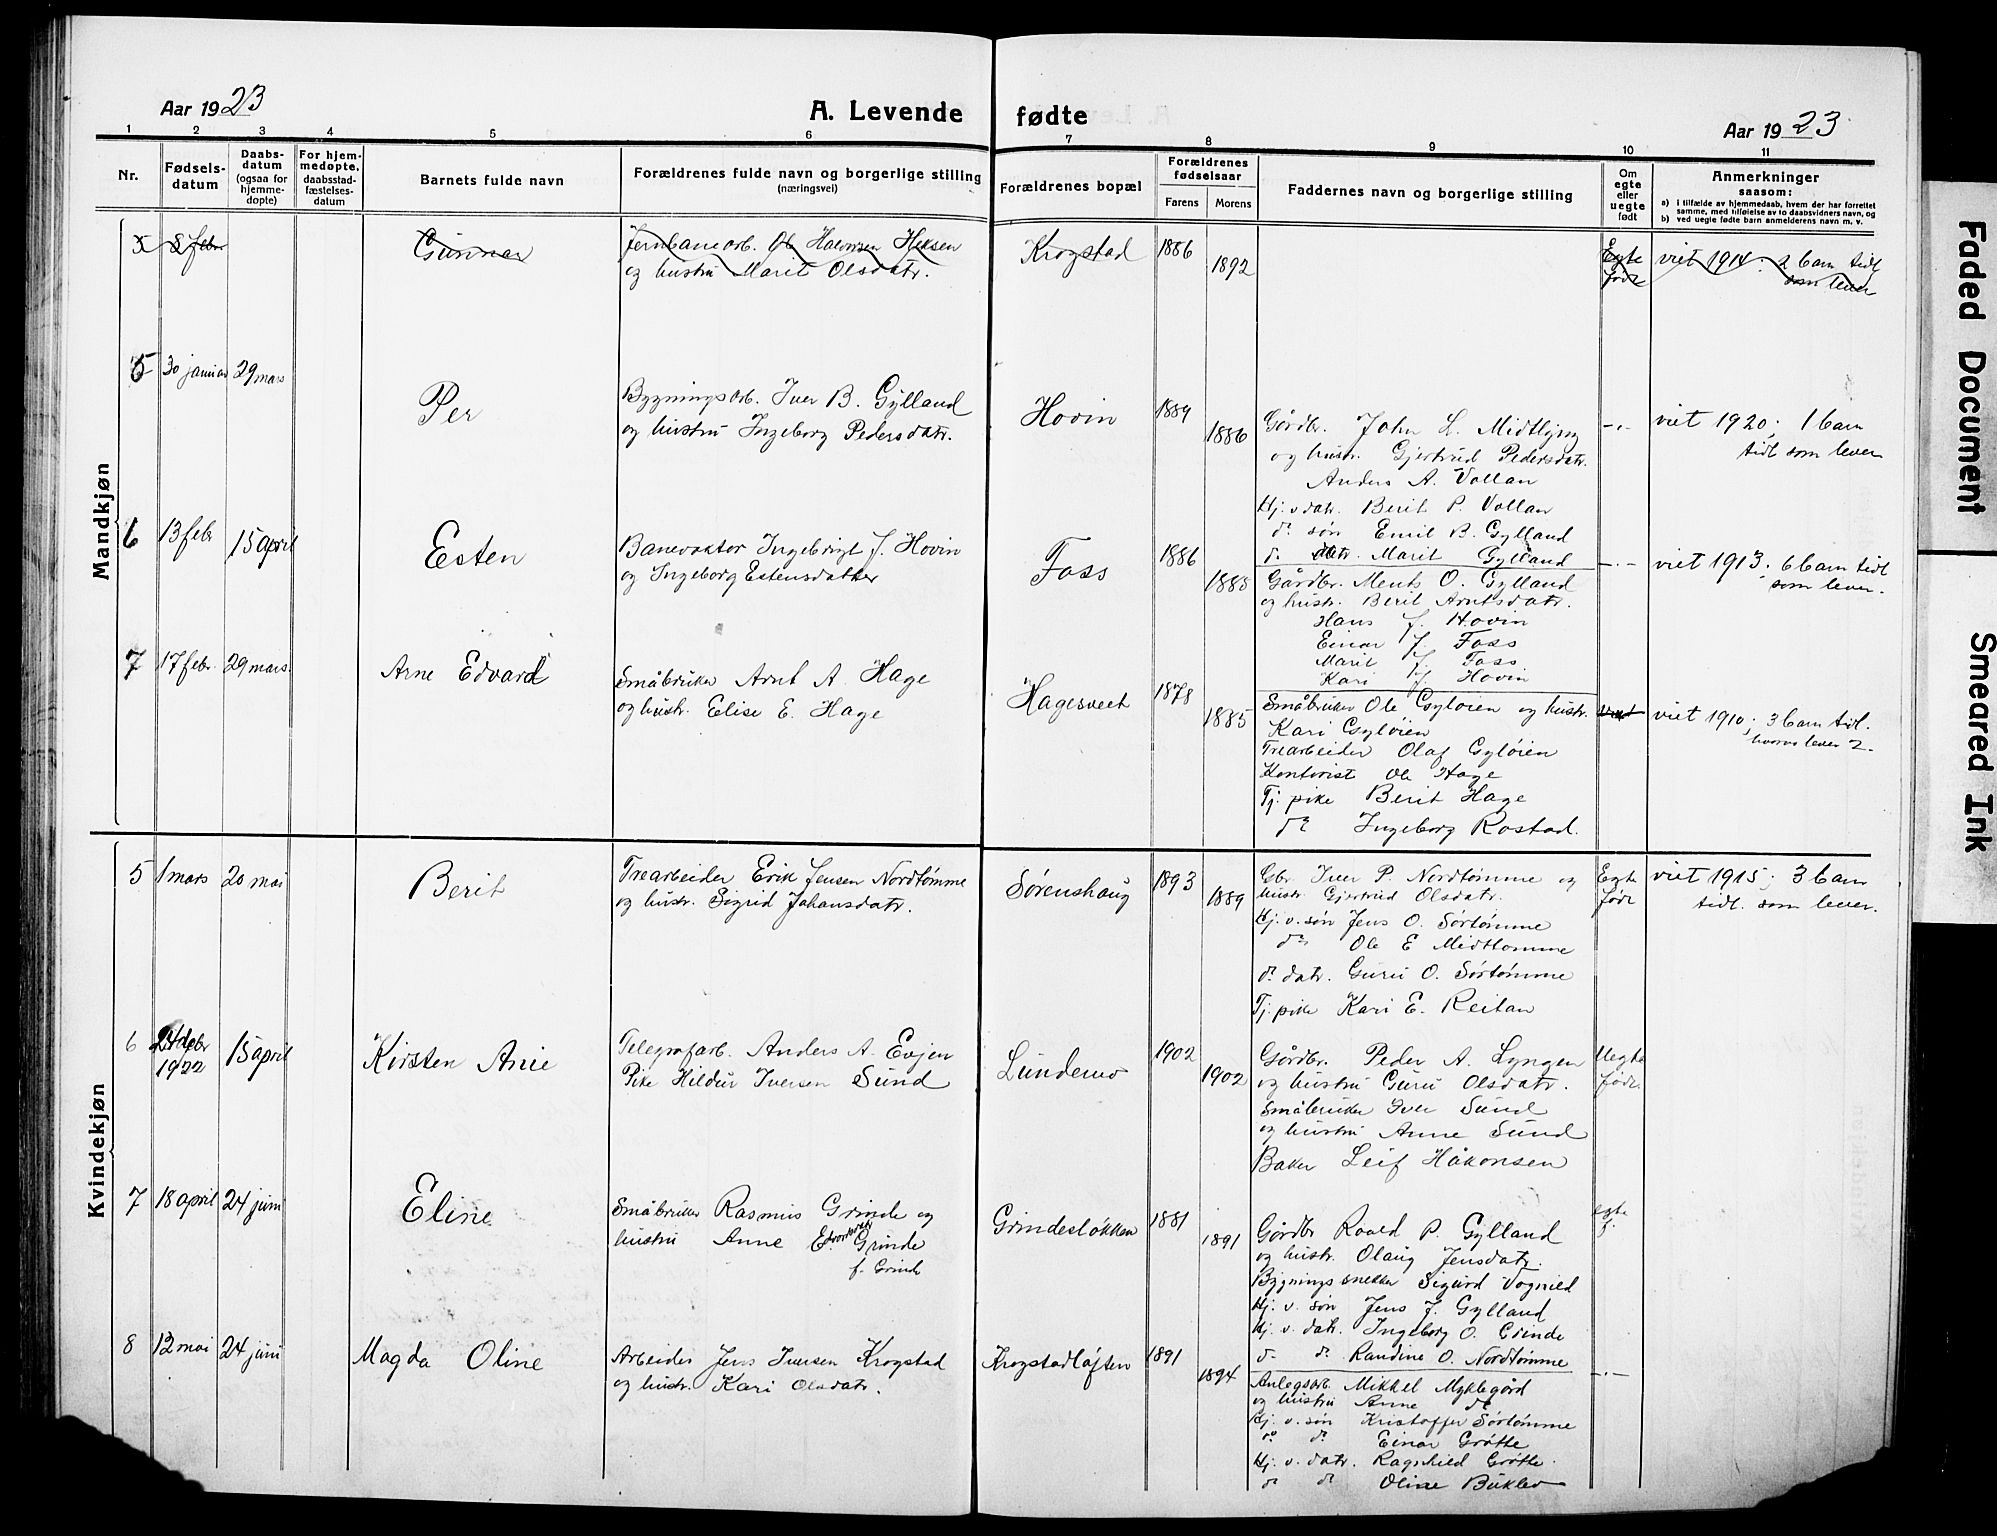 Aar 1923
A. Levende fødte
Aar 1923
1 2 3 4 5 6 7 8 9 10 11
Nr.
Fødsels-
datum
Daabs-
datum
(ogsaa for
hjemme-
døpte)
For hjem-
medøpte,
daabsstad-
fæstelses-
datum
Barnets fulde navn
Forældrenes fulde navn og borgerlige stilling
(næringsvei)
Forældrenes bopæl
Forældrenes
fødselsaar
Farens Morens
Faddernes navn og borgerlige stilling
Om
egte
eller
uegte
født
Anmerkninger
saasom:
a) i tilfælde av hjemmedaab, hvem der har forrettet
samme, med tilføielse av to daabsvidners navn, og
b) ved uegte fødte barn anmelderens navn m. v.
Mandkjøn
5 8 febr Gunnar
Jernbanearb. Ole Halvorsen
og hustru Marit Olsdatr.
Krogstad 1886 1892
Egte
født
viet 1914. 2 barn tidl
som lever
5 30 januar 29 mars Per
Bygningsarb. Iver B. Gylland
og hustru Ingeborg Pedersdatr.
Hovin 1889 1886
Gårdbr. John L. Midtlyng
og hustr. Gjertrud Pedersdatr.
Anders A. Vollan
Hj. v datr. Berit P. Vollan
do søn Emil B. Gylland
do datr. Marit Gylland
-"-
viet 1920; 1 barn
tidl som lever
6 13 febr 15 april Esten
Banevokter Ingebrigt J. Hovin
og Ingeborg Estensdatter
Foss 1886 1885
Gårdbr. Ments O. Gylland
og hustr. Berit Arntsdatr.
Hans J. Hovin
Einar J. Foss
Marit J. Foss
Kari J. Hovin
-"-
viet 1913; 6 barn tidl
som lever.
7 17 febr. 29 mars. Arne Edvard
Småbruker Arnt A. Hage
og hustr. Elise E. Hage
Hagesveet 1878 1885
Småbruker Ole Gyløien og hustr.
Kari Gyløien
Trearbeider Olaf Gyløien
Kontorist Ole Hage
Tj. pike Berit Hage
do Ingeborg Rostad.
viet 1910; 3 barn tidl.
hvorav lever 2.
Kvindekjøn
5 1 mars 20 mai Berit
Trearbeider Erik Jensen Nordtømme
og hustr. Sigrid Johansdatr.
Sørenshaug 1893 1889
Gbr. Iver P. Nordtømme og
hustr. Gjertrud Olsdatr.
Hj. v. søn Jens O. Sørtømme
do Ole E Midttømme
do datr. Guru O. Sørtømme
Tj. pike Kari E. Reitan
Egte
født
viet 1915; 3 barn
tidl. som lever.
6 1922 15 april Kirsten Anie
Telegrafarb. Anders A. Evjen
Pike Hildur Iversen Sund
Lundemo 1902 1902
Gårdbr. Peder A. Lyngen
og hustru Guru Olsdatr.
Småbruker Iver Sund
og hustru Anne Sund
Baker Leif Håkonsen
Uegte
født.
7 18 april 24 juni Eline
Småbruker Rasmus Grinde og
hustru Anne Grinde
f. Grinde
Grindesløkken 1881 1891
Gårdbr Roald P. Gylland
og hustr. Olaug Jensdatr.
Bygningssnekker Sigurd Vognild
Hj. v. søn Jens J. Gylland
Hj. v. datr. Ingeborg O. Grinde
do do Randine O. Nordtømme
egte
f.
8 12 mai 24 juni Magda Oline
Arbeider Jens Iversen Krogstad
og hustr. Kari Olsdatr.
Krogstadløften 1891 1894
Anlegsarb. Mikkel Myklegård
og hustru Anne do
Hj. v. søn Kristoffer Sørtømme
do do Einar Grøtte
Hj. v. datr. Ragnhild Grøtte.
do do Oline Buklev
-"-
Faded Document
Smeared Ink